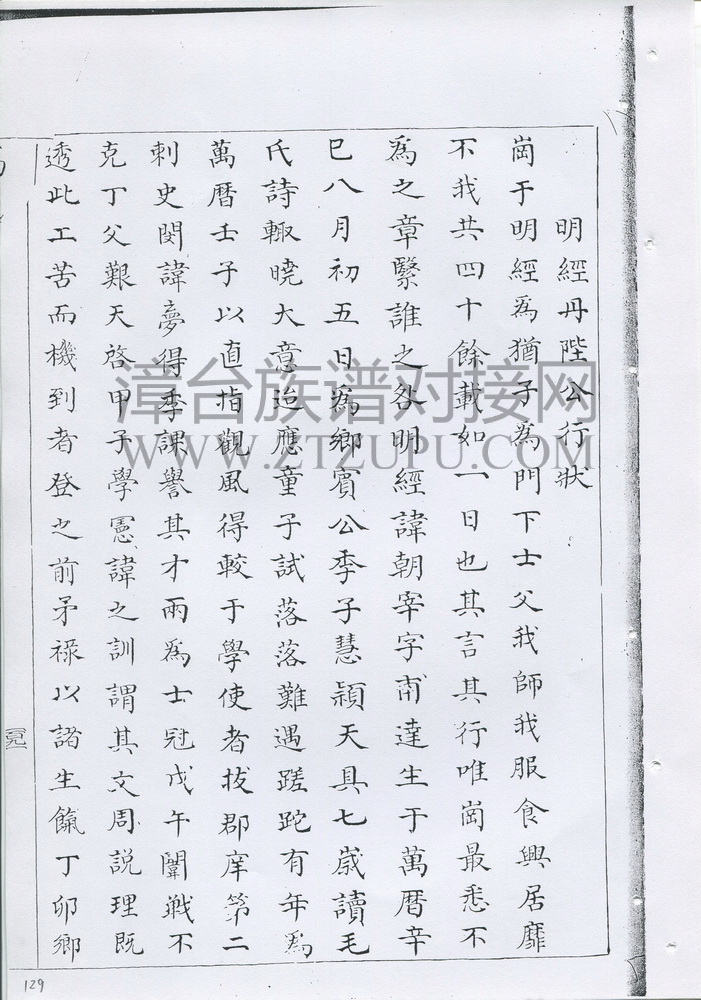 明經丹陛公行狀
崗于明經為猶子為門下士父我師我服食興居靡
不我共四十餘載如一日也其言其行唯崗最悉不
為之章緊誰之咎明經諱朝宰字甫達生于萬曆辛
巳八月初五日為鄉賓公季子慧穎天具七歲讀毛
氏詩輙曉大意迨應童子試落落難遇蹉跎有年為
萬曆壬子以直指觀風得較于學使者拔郡庠第二
刺史閔諱夢得季課譽其才兩為士冠戊午闈戰不
克丁父艱天啓甲子學憲諱之訓謂其文周說理既
透此工苦而機到者登之前矛祿以諸生餼丁卯鄉
129
漳台族谱对接网
WWW.ZTZUPU.COM